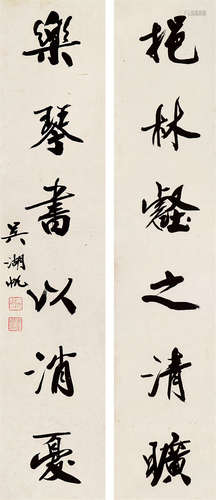 挹林壑之清曠
樂琴書以消憂
吳湖帆